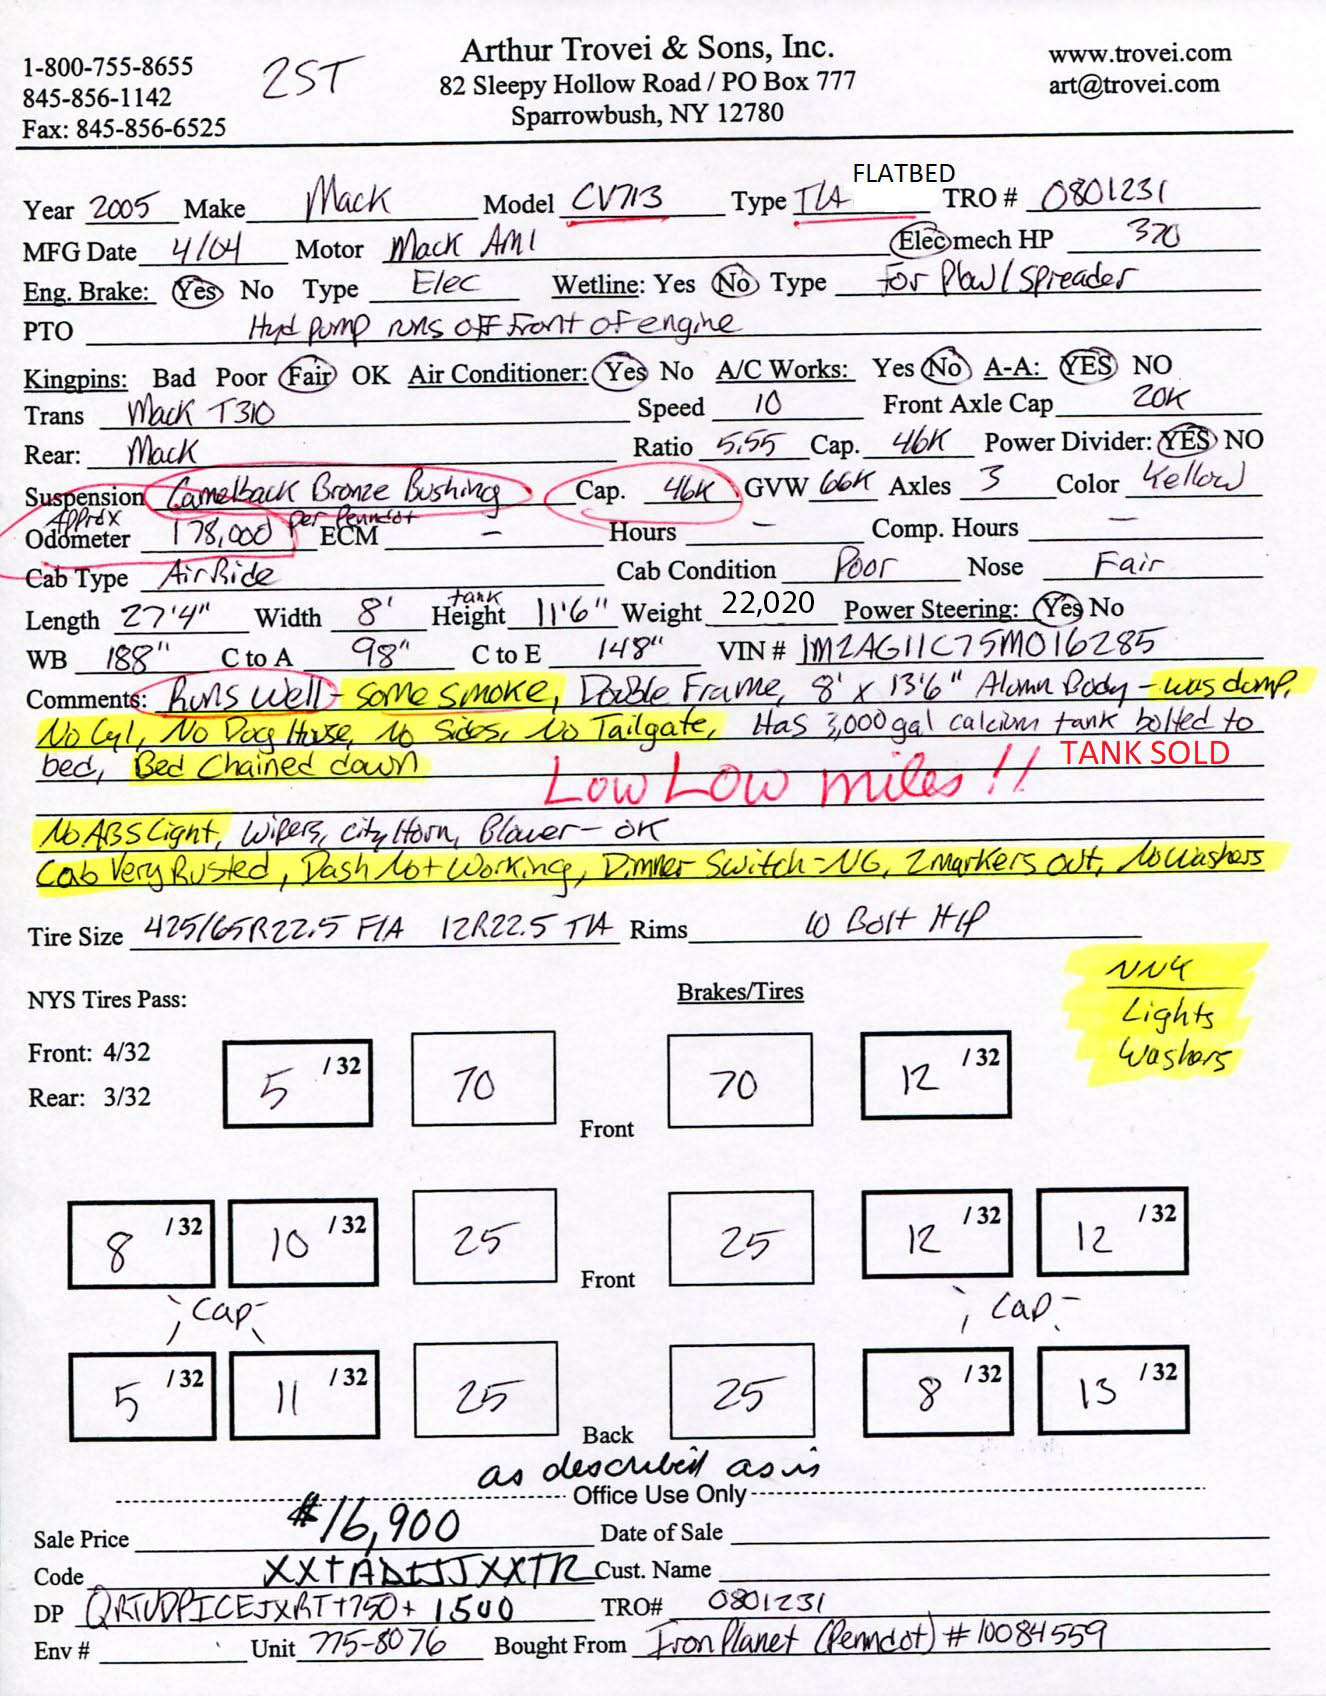 1-800-755-8655
845-856-1142
Fax: 845-856-6525
2ST
Arthur Trovei & Sons, Inc.
82 Sleepy Hollow Road / PO Box 777
Sparrowbush, NY 12780
www.trovei.com
art@trovei.com
Year 2005 Make Mack Model CV713 Type T/A FLATBED TRO # 0801231
MFG Date 4/04 Motor Mack AMI Elec mech HP 370
Eng. Brake: Yes No Type Elec Wetline: Yes No Type For Plow/Spreader
PTO Hyd pump runs off front of engine
Kingpins: Bad Poor Fair OK Air Conditioner: Yes No A/C Works: Yes No A-A: YES NO
Trans Mack T310 Speed 10 Front Axle Cap 20K
Rear: Mack Ratio 5.55 Cap. 46K Power Divider: YES NO
Suspension Camelback Bronze Bushing Cap. 46K GVW 66K Axles 3 Color Yellow
Approx Odometer 178,000 per Penndot ECM - Hours - Comp. Hours -
Cab Type Air Ride Cab Condition Poor Nose Fair
Length 27'4" Width 8' tank Height 11'6" Weight 22,020 Power Steering: Yes No
WB 188" C to A 98" C to E 148" VIN # 1M2AG11C75M016285
Comments: Runs Well - some smoke, Double Frame, 8' x 13'6" Alumn Body - was dump,
No Cyl, No Dog House, No Sides, No Tailgate, Has 3,000 gal calcium tank bolted to
bed, Bed Chained down TANK SOLD
Low Low miles!!
No ABS Light, Wipers, City Horn, Blower - OK
Cab Very Rusted, Dash Not Working, Dimmer Switch - NG, 2 markers out, No Washers
Tire Size 425/65R22.5 F/A 12R22.5 T/A Rims 10 Bolt HP
NYS Tires Pass:
Front: 4/32
Rear: 3/32
Brakes/Tires
NNY
Lights
Washers
5 /32 70 Front 70 12 /32
8 /32 10 /32 25 Front 25 12 /32 12 /32
Cap Cap
5 /32 11 /32 25 Back 25 8 /32 13 /32
as described as is
Office Use Only
Sale Price $16,900 Date of Sale
Code Cust. Name
DP TRO# 0801231
Env # Unit 775-8076 Bought From Iron Planet (Penndot) #10084559